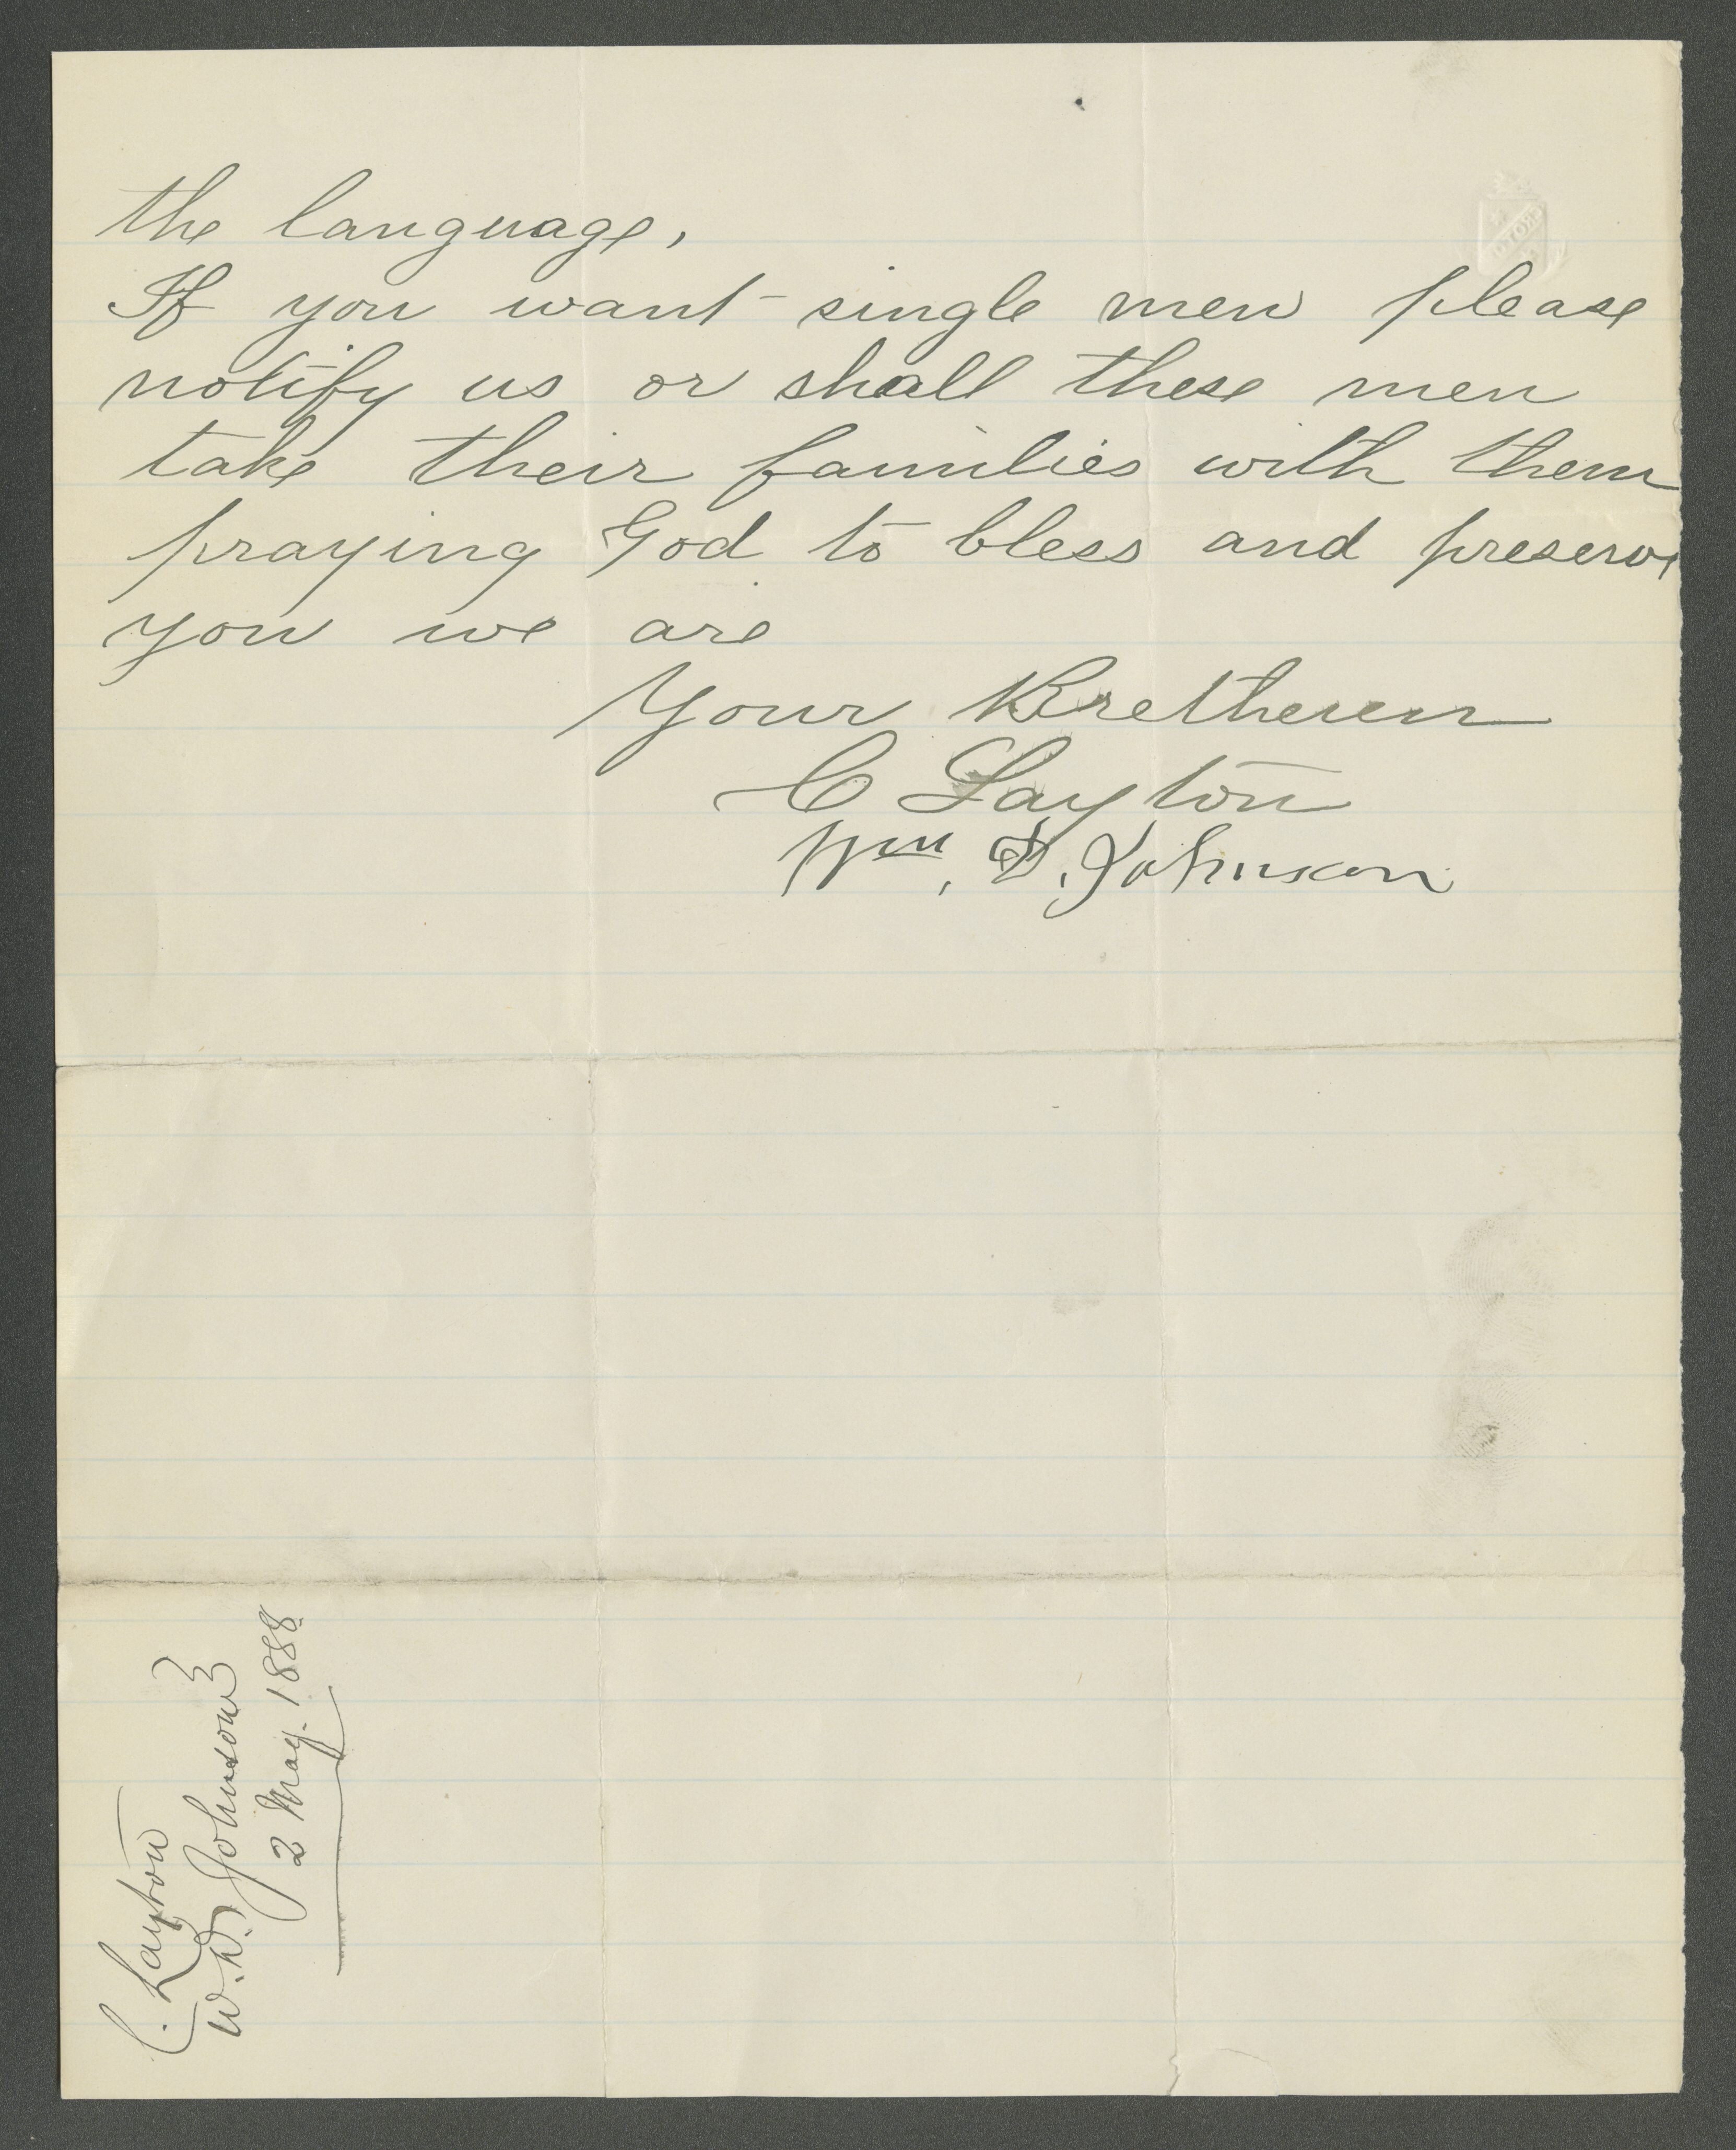 the language,
If you want single men please
notify us or shall these men
take their families with them
praying God to bless and preserve
you we are
Your Bretheren
C Layton
Wm. D. Johnson
C. Layton
W. D. Johnson }
2 May. 1888.